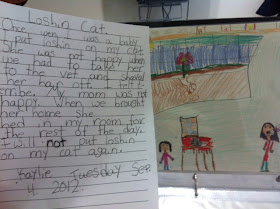 Loshin Cat.
Once wen I was a baby
I put loshin on my cat.
She was not happy when
we had to take her
to the vet and shaved
her hair off. I felt
trribe. My mom was not
happy. When we brought
her home she
hed in my room for
the rest of the day.
I will not put loshin
on my cat again.
Kaylie Tuesday Sep.
4 2012